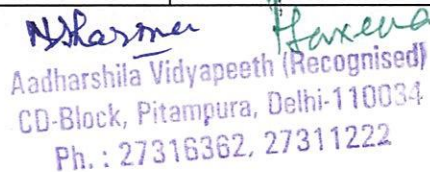 NSharma Haxena
Aadharshila Vidyapeeth (Recognised)
CD-Block, Pitampura, Delhi-110034
Ph. : 27316362, 27311222